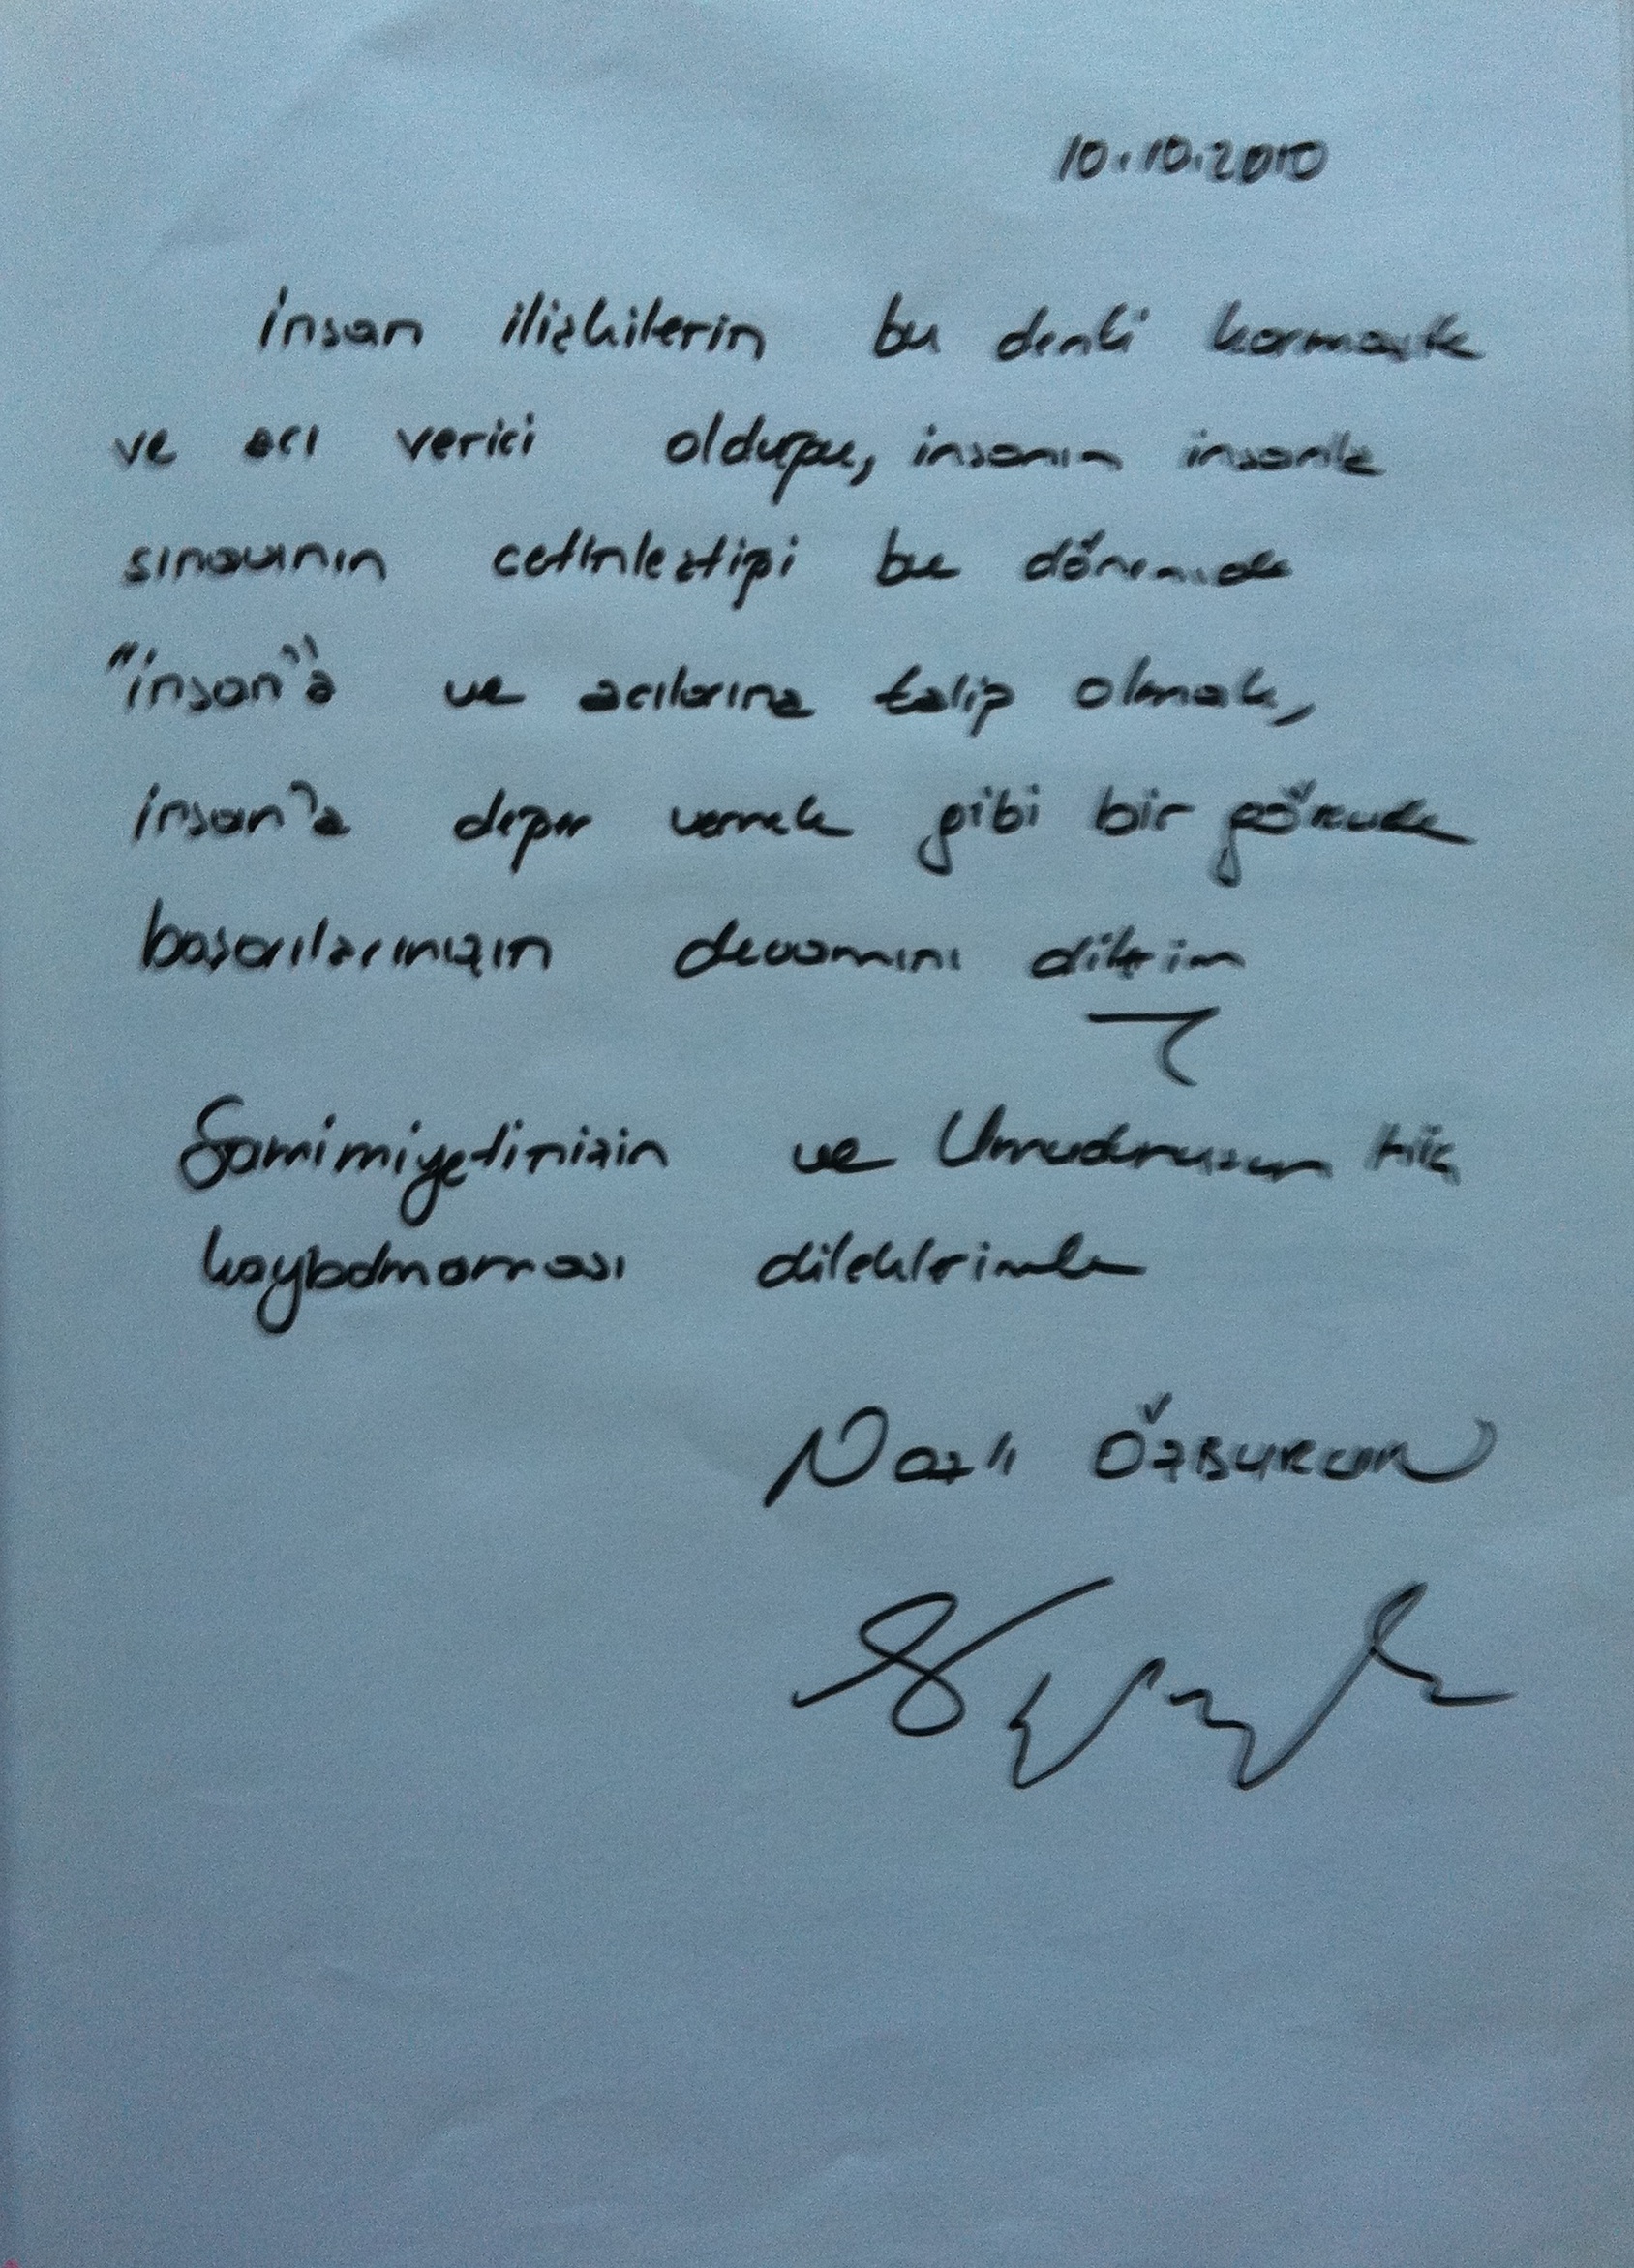 10.10.2010
İnsan ilişkilerin bu denli karmaşık
ve acı verici olduğu, insanın insanla
sınavının cetinleştiği bu dönemde
"insan"a ve acılarına talip olmak,
insan'a değer vermek gibi bir görevde
başarılarınızın devamını dilerim
Samimiyetinizin ve Umudunuzun hiç
kaybolmaması dileklerimle
Nazlı ÖZBURUN